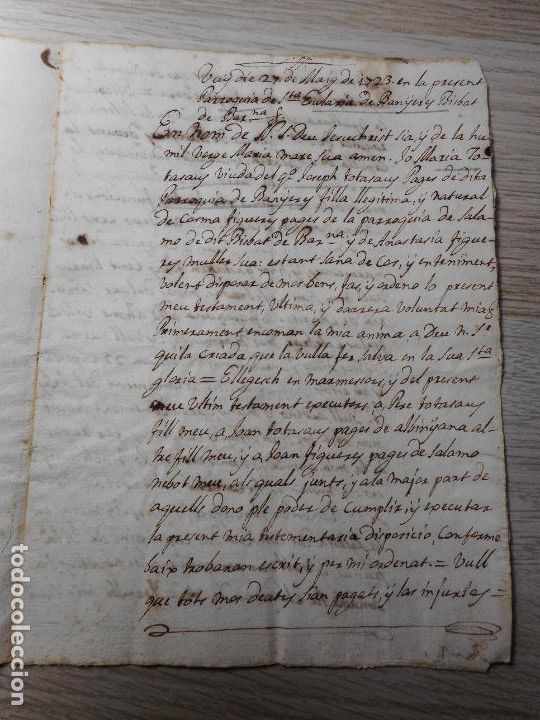 Vuy die 27 de Maig de 1723 en la present
Parroquia de Sta Eularia de Banyeres Bisbat
de Barna &
En nom de N. S. Deu Jesuchrist sia, y de la hu
mil Verge Maria mare sua amen. Jo Maria To-
tasaus viuda del qº. Joseph totasaus Pages de dita
Parroquia de Banyeres filla llegitima, y natural
de Cosma figueres pages de la parroquia de Sala
mo de dit Bisbat de Barna, y de Anastasia figue
res muller sua: estant sana de Cos, y enteniment,
volent disposar de mos bens, fas, y ordeno lo present
meu testament, ultima, y darrera voluntat mia
Primerament encoman la mia anima a Deu N. Sr
qui la Criada que la vulla fer salva en la sua Sta
gloria = Ellegesch en marmessors, y del present
meu Ultim testament executors a Pere totasaus
fill meu, a Joan totasaus pages de albinyana al-
tre fill meu, y a Joan figueres pages de Salamo
nebot meu, als quals junts, y a la major part de
aquells dono ple poder de Cumplir, y executar
la present mia testamentaria disposicio Conforme
baix trobaran escrit, y per mi ordenat. = Vull
que tots mos deutes sian pagats, y las injurias =
todocoleccion